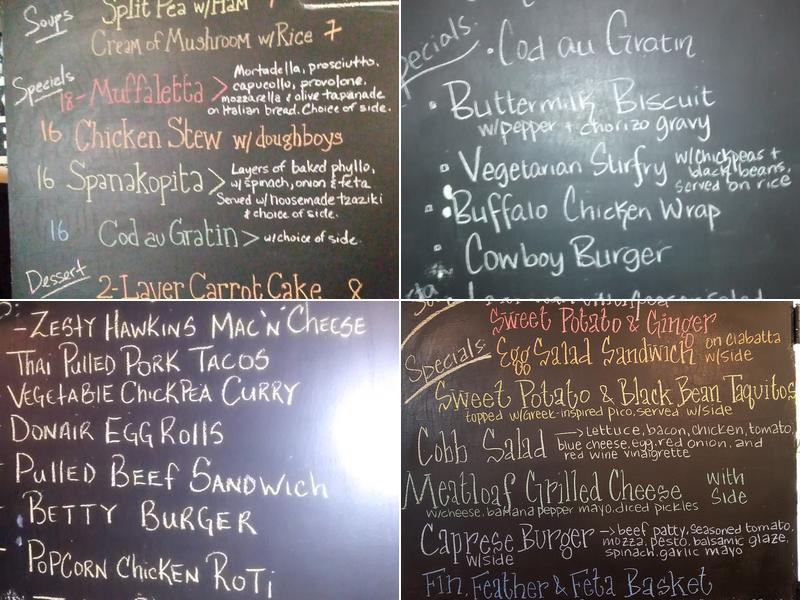 Soups
Split Pea w/Ham 7
Cream of Mushroom w/Rice 7
Specials
18-Muffaletta > Mortadella, prosciutto,
capucollo, provolone,
mozzarella & olive tapanade
on Italian bread. Choice of side.
16 Chicken Stew w/doughboys
16 Spanakopita > Layers of baked phyllo,
w/spinach, onion & feta
Served w/housemade tzaziki
& choice of side.
16 Cod au Gratin > w/choice of side.
Dessert
2-Layer Carrot Cake 8
Specials:
Cod au Gratin
Buttermilk Biscuit
w/pepper + chorizo gravy
Vegetarian Stirfry w/chickpeas +
black beans,
served on rice
Buffalo Chicken Wrap
Cowboy Burger
-Zesty Hawkins Mac'n'Cheese
Thai Pulled Pork Tacos
Vegetable Chickpea Curry
Donair Egg Rolls
Pulled Beef Sandwich
Betty Burger
Popcorn Chicken Roti
Sweet Potato & Ginger
Specials:
Egg Salad Sandwich on ciabatta
w/side
Sweet Potato & Black Bean Taquitos
topped w/Greek-inspired pico, served w/side
Cobb Salad → Lettuce, bacon, chicken, tomato,
blue cheese, egg, red onion, and
red wine vinaigrette
Meatloaf Grilled Cheese with
Side
w/cheese, banana pepper mayo, diced pickles
Caprese Burger → beef patty, seasoned tomato,
w/side
mozza, pesto, balsamic glaze,
spinach, garlic mayo
Fin, Feather & Feta Basket